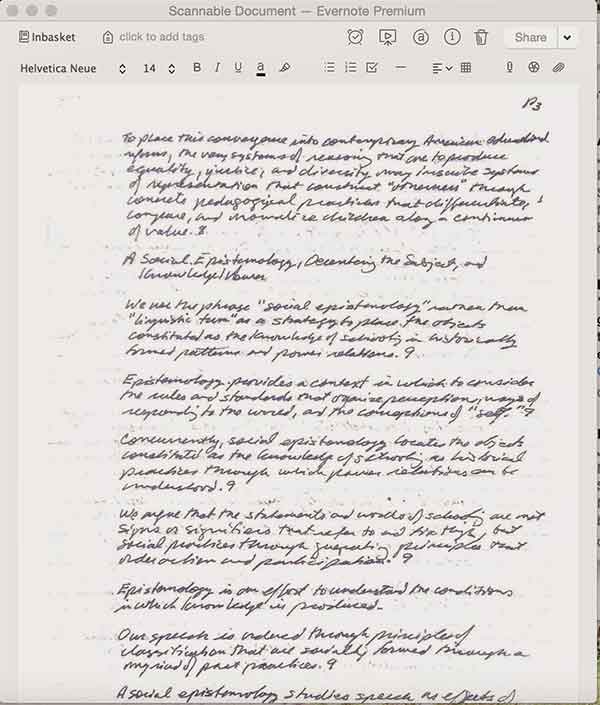 Scannable Document — Evernote Premium
Inbasket click to add tags Share
Helvetica Neue 14 B I U a
P3
To place this conveyance into contemporary American educational
reforms, the very systems of reasoning that are to produce
equality, justice, and diversity may inscribe systems
of representation that construct "otherness" through
concrete pedagogical practices that differentiate,
compare, and normalize children along a continuum
of value. 8
A Social Epistemology, Decentering the Subject, and
Knowledge/Power
We use the phrase "social epistemology" rather than
"linguistic turn" as a strategy to place the objects
constituted as the knowledge of schooling in historically
formed patterns and power relations. 9
Epistemology provides a context in which to consider
the rules and standards that organize perceptions, ways of
responding to the world, and the conceptions of "self." 9
Concurrently, social epistemology locates the objects
constituted as the knowledge of schooling as historical
practices through which power relations can be
understood. 9
We argue that the statements and words of schooling are not
signs or signifiers that refer to and fix things, but
social practices through generating principles that
order action and participation. 9
Epistemology is an effort to understand the conditions
in which knowledge is produced.
Our speech is ordered through principles of
classification that are socially formed through a
myriad of past practices. 9
A social epistemology studies speech as effects of